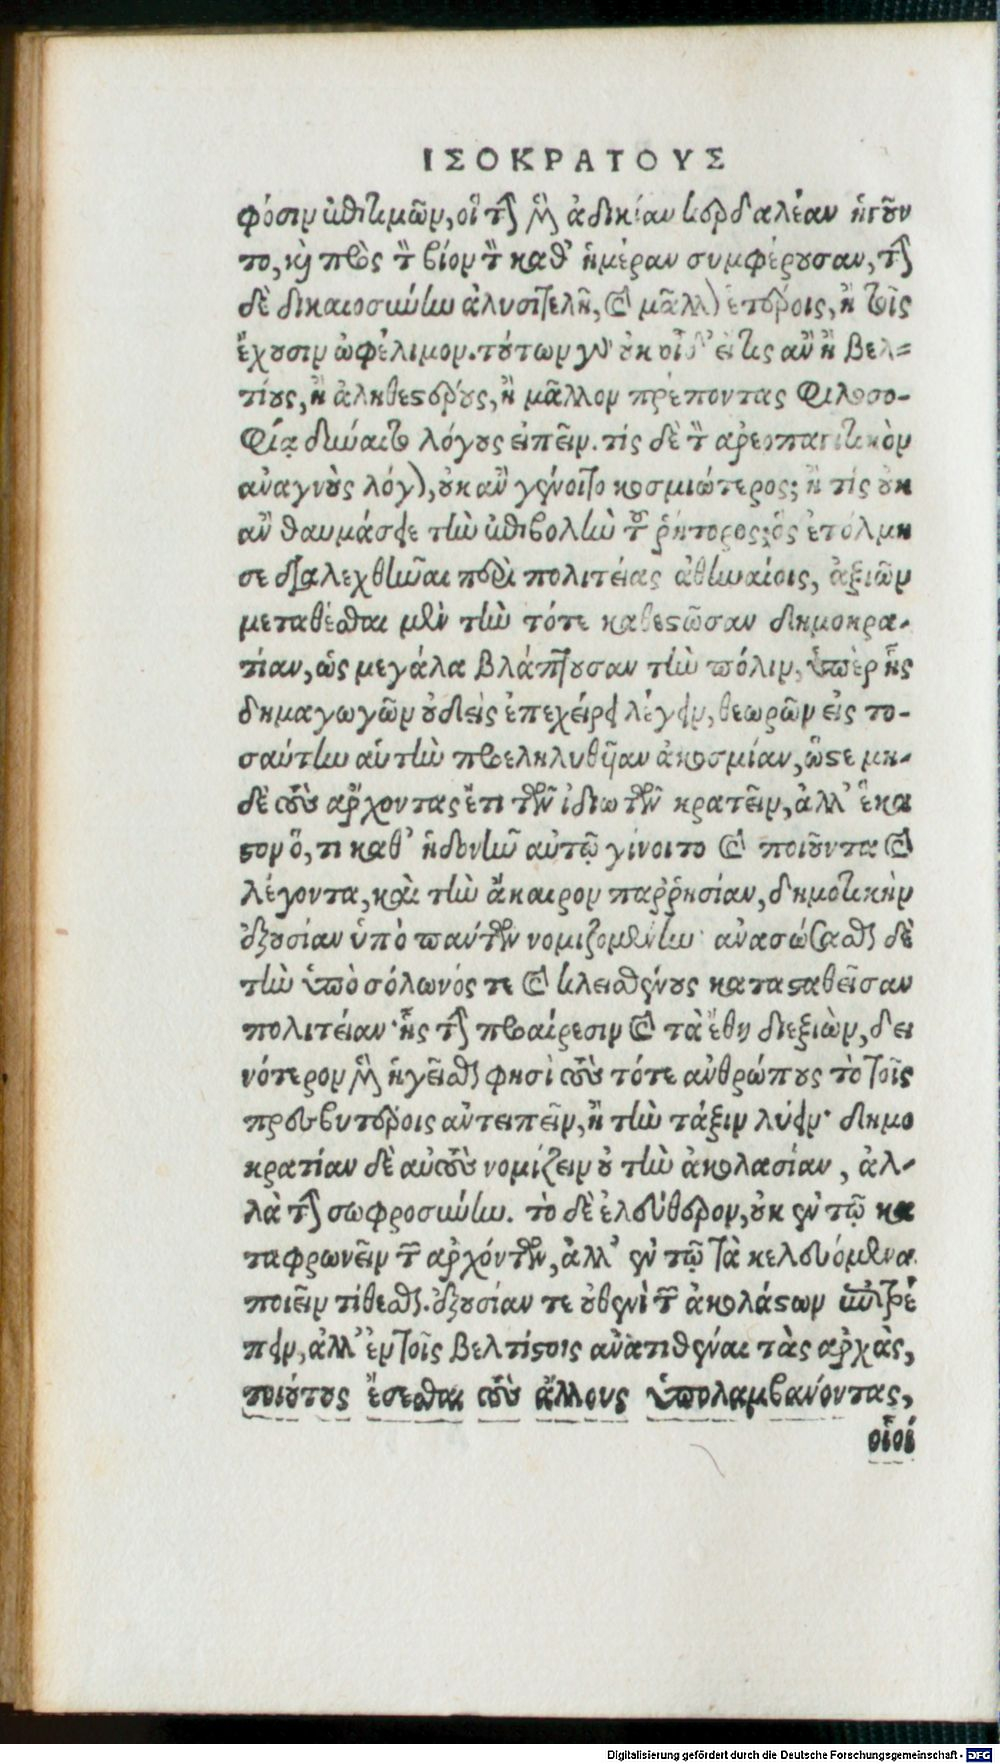 ΙΣΟΚΡΑΤΟΥΣ
φόσιν ἐπιτιμῶν, οἳ τὴν μὲν ἀδικίαν κερδαλέαν ἡγοῦν
το, καὶ πρὸς τὸν βίον τὸν καθ' ἡμέραν συμφέρουσαν, τὴν
δὲ δικαιοσύνην ἀλυσιτελῆ, καὶ μᾶλλον ἑτέροις, ἢ τοῖς
ἔχουσιν ὠφέλιμον. τούτων γὰρ οὐκ οἶδ' εἴ τις ἂν ἢ βελ=
τίους, ἢ ἀληθεστέρους, ἢ μᾶλλον πρέποντας φιλοσο-
φίᾳ δύναιτο λόγους εἰπεῖν. τίς δὲ τὸν ἀρεοπαγιτικὸν
ἀναγνοὺς λόγον, οὐκ ἂν γένοιτο κοσμιώτερος; ἢ τίς οὐκ
ἂν θαυμάσειε τὴν ἐπιβολὴν τοῦ ῥήτορος; ὃς ἐτόλμη
σε διαλεχθῆναι περὶ πολιτείας ἀθηναίοις, ἀξιῶν
μεταθέσθαι μὲν τὴν τότε καθεστῶσαν δημοκρα-
τίαν, ὡς μεγάλα βλάπτουσαν τὴν πόλιν, ὑπὲρ ἧς
δημαγωγῶν οὐδεὶς ἐπεχείρει λέγειν, θεωρῶν εἰς το-
σαύτην αὐτὴν προεληλυθῆαν ἀκοσμίαν, ὥστε μη-
δὲ τοὺς ἄρχοντας ἔτι τῶν ἰδιωτῶν κρατεῖν, ἀλλ' ἕκα
στον ὅ, τι καθ' ἡδονὴν αὐτῷ γίνοιτο καὶ ποιοῦντα καὶ
λέγοντα, καὶ τὴν ἄκαιρον παῤῥησίαν, δημοτικὴν
ἐξουσίαν ὑπὸ πάντων νομιζομένην· ἀνασώσασθαι δὲ
τὴν ὑπὸ σόλωνός τε καὶ κλεισθένους κατασταθεῖσαν
πολιτείαν· ἧς τὴν προαίρεσιν καὶ τὰ ἔθη διεξιὼν, δει
νότερον μὲν ἡγεῖσθαι φησὶ τοὺς τότε ἀνθρώπους τὸ τοῖς
πρεσβυτέροις ἀντειπεῖν, ἢ τὴν τάξιν λύειν· δημο
κρατίαν δὲ αὐτοὺς νομίζειν οὐ τὴν ἀκολασίαν, ἀλ-
λὰ τὴν σωφροσύνην. τὸ δὲ ἐλεύθερον, οὐκ ἐν τῷ κα
ταφρωνεῖν τῶν ἀρχόντων, ἀλλ' ἐν τῷ τὰ κελευόμενα
ποιεῖν τίθεσθαι. ἐξουσίαν τε οὐθενὶ τῶν ἀκολάστων ἐπιτρέ
πειν, ἀλλ' ἐν τοῖς βελτίστοις ἀνατιθέναι τὰς ἀρχὰς,
τοιούτους ἔσεσθαι τοὺς ἄλλους ὑπολαμβανόντας,
οἷοί
Digitalisierung gefördert durch die Deutsche Forschungsgemeinschaft - DFG